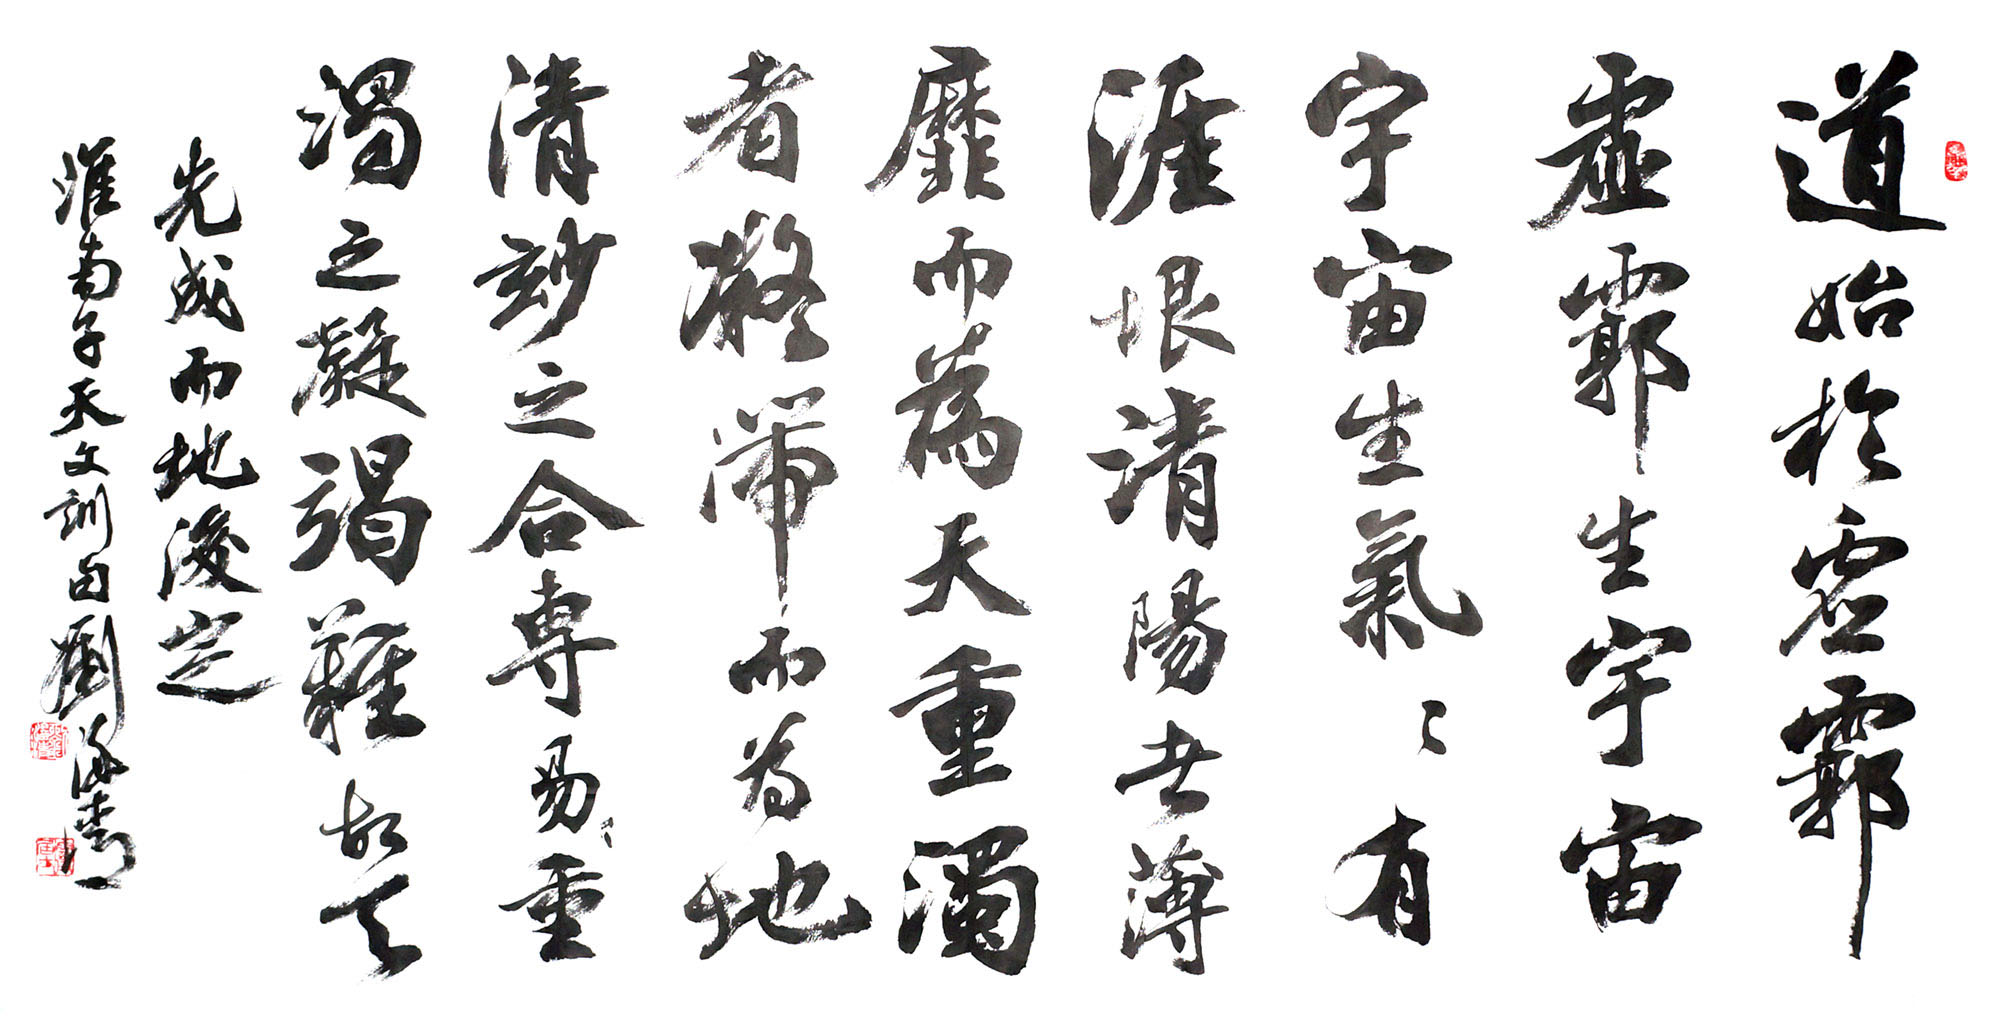 道始於虛霩
虛霩生宇宙
宇宙生氣〻有
涯垠清陽者薄
靡而為天重濁
者凝滯而為地
清玅之合專易重
濁之凝竭難故天
先成而地後定
淮南子天文訓句劉